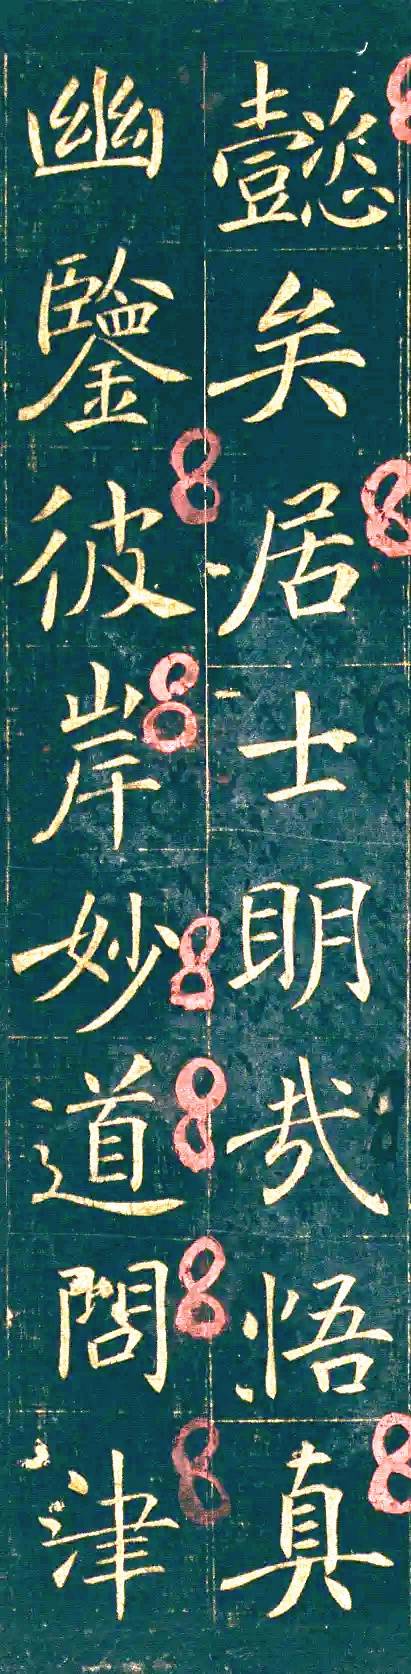 懿矣居士明哉悟真
幽鑒彼岸妙道問津